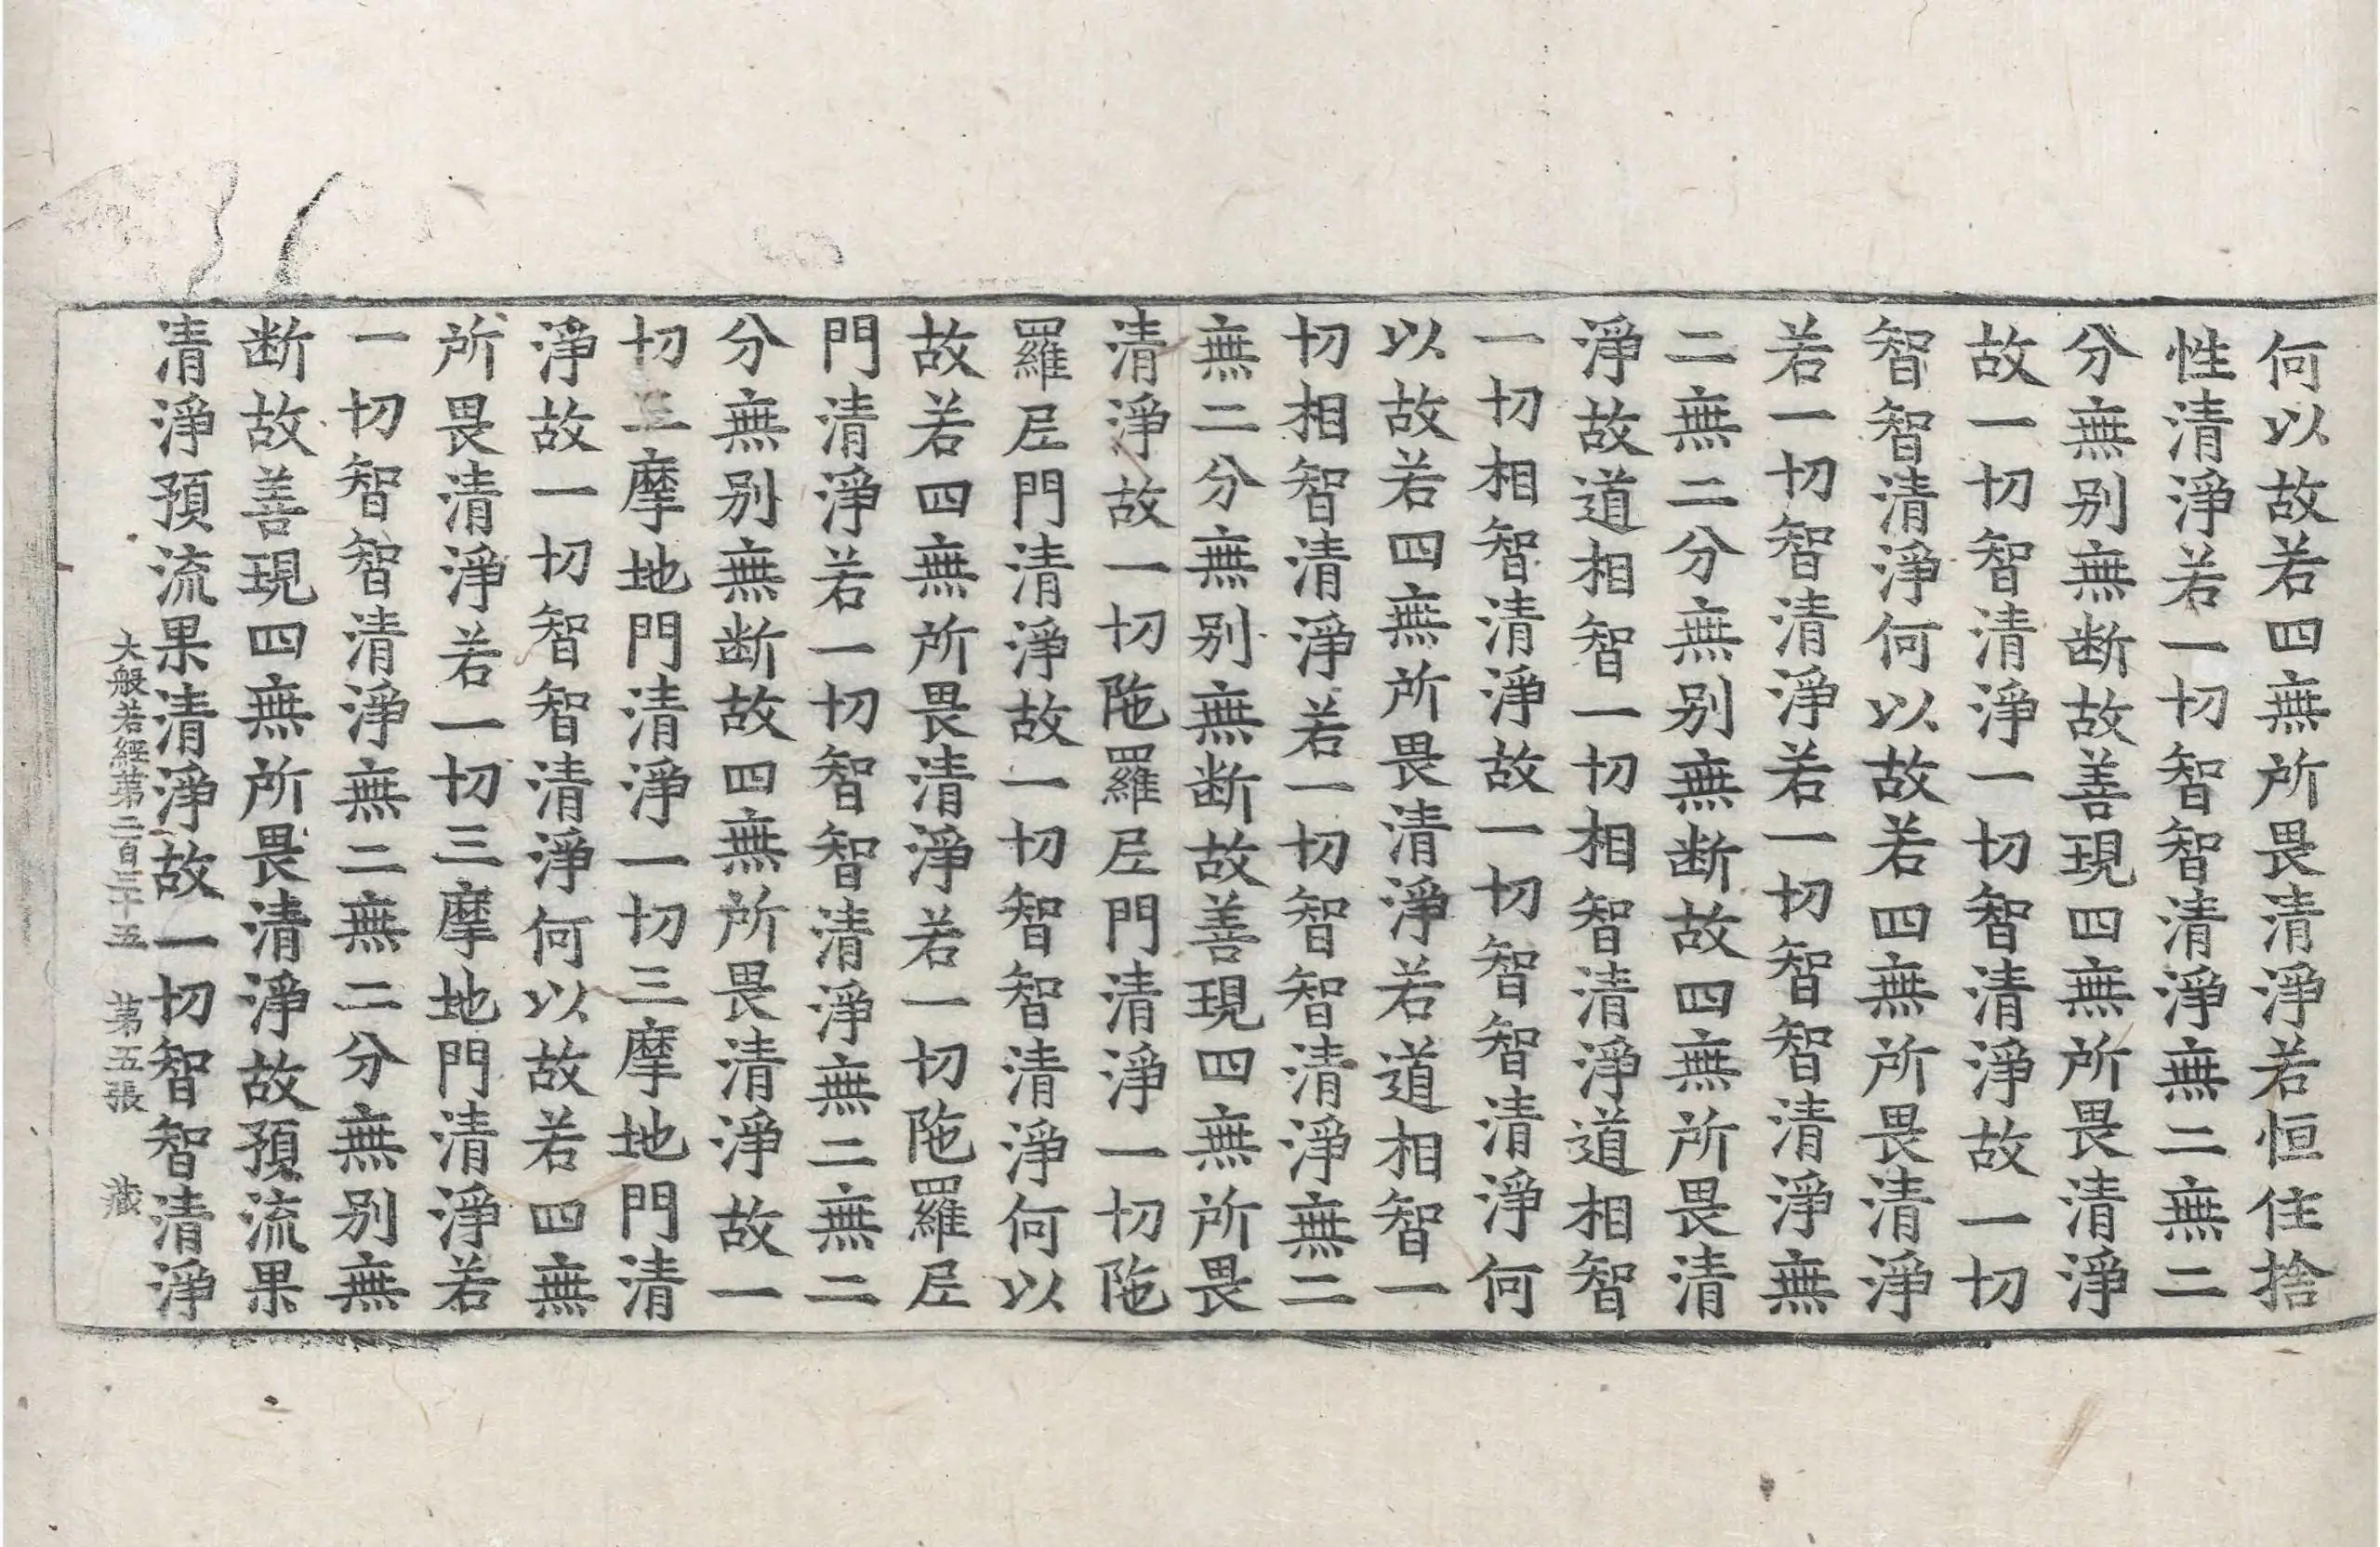 何以故若四無所畏清淨若恒住捨
性清淨若一切智智清淨無二無二
分無別無断故善現四無所畏清淨
故一切智清淨一切智清淨故一切
智智清淨何以故若四無所畏清淨
若一切智清淨若一切智智清淨無
二無二分無別無断故四無所畏清
淨故道相智一切相智清淨道相智
一切相智清淨故一切智智清淨何
以故若四無所畏清淨若道相智一
切相智清淨若一切智智清淨無二
無二分無別無断故善現四無所畏
清淨故一切陁羅尼門清淨一切陁
羅尼門清淨故一切智智清淨何以
故若四無所畏清淨若一切陁羅尼
門清淨若一切智智清淨無二無二
分無別無断故四無所畏清淨故一
切三摩地門清淨一切三摩地門清
淨故一切智智清淨何以故若四無
所畏清淨若一切三摩地門清淨若
一切智智清淨無二無二分無別無
断故善現四無所畏清淨故預流果
清淨預流果清淨故一切智智清淨
大般若經苐二百三十五 苐五張 藏